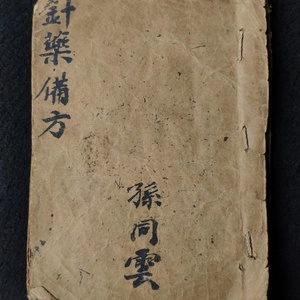 針藥備方
孫同雲